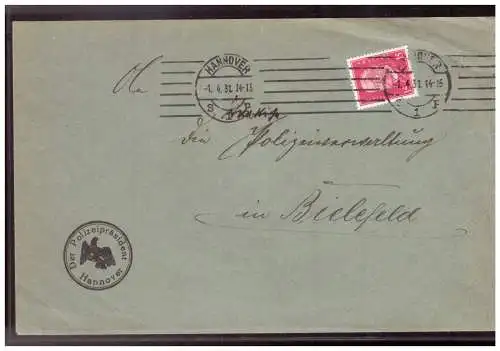 HANNOVER
-1.4.31.14-15
An
die Polizeiverwaltung
in Bielefeld
Der Polizeipräsident
Hannover